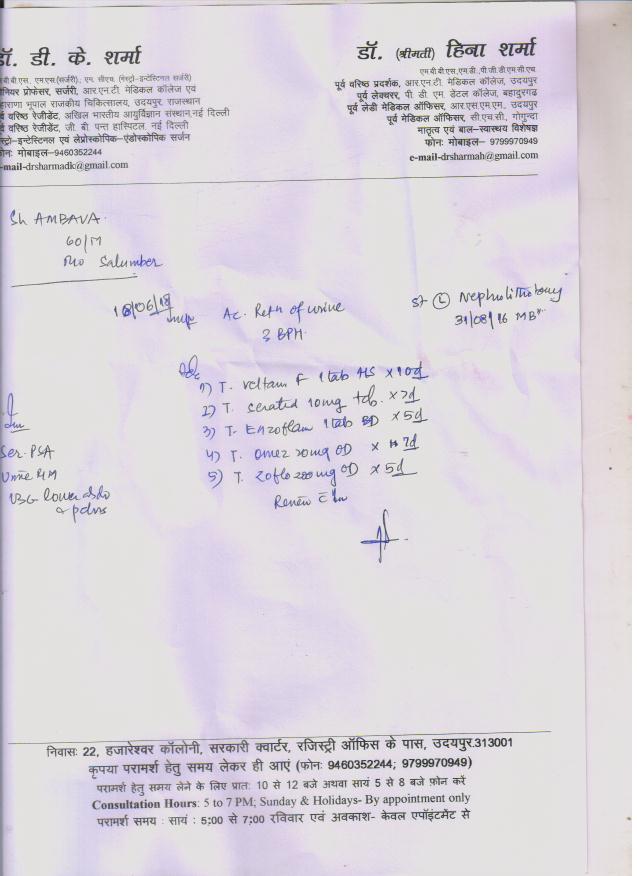 डॉ. डी. के. शर्मा
एम.एस(सर्जरी)., एम. सीएच. (गेस्ट्रो-इन्टेस्टिनल सर्जरी)
प्रोफेसर, सर्जरी, आर.एन.टी. मेडिकल कॉलेज एवं
भूपाल राजकीय चिकित्सालय, उदयपुर, राजस्थान
वरिष्ठ रेजीडेंट, अखिल भारतीय आयुर्विज्ञान संस्थान, नई दिल्ली
वरिष्ठ रेजीडेंट, जी. बी. पन्त हास्पिटल, नई दिल्ली
एवं लेप्रोस्कोपिक-एंडोस्कोपिक सर्जन
मोबाइल-9460352244
-mail-drsharmadk@gmail.com
डॉ. (श्रीमती) हिना शर्मा
एम.बी.बी.एस, एम.डी., पी.जी.डी.एम.सी.एच.
पूर्व वरिष्ठ प्रदर्शक, आर.एन.टी. मेडिकल कॉलेज, उदयपुर
पूर्व लेक्चरर, पी. डी. एम. डेंटल कॉलेज, बहादुरगढ
पूर्व लेडी मेडिकल ऑफिसर, आर.एस.एम.एम., उदयपुर
पूर्व मेडिकल ऑफिसर, सी.एच.सी., गोगुन्दा
मातृत्व एवं बाल-स्वास्थय विशेषज्ञ
फोन: मोबाइल- 9799970949
e-mail-drsharmah@gmail.com
Sh AMBAVA
60/M
R/o Salumber
18/06/18
Ac. Retn of urine
BPH
S/P (L) Nephrolithotomy
31/08/16 MB
1) T. Veltam F 1 tab HS x 10d
2) T. 10mg x 7d
3) T. Enzoflam 1 tab BD x 5d
4) T. Omez 20mg OD x 7d
5) T. Zoflo 200mg OD x 5d
Review
Ser. PSA
Urine RM
USG lower abdo
& pelvis
निवास: 22, हजारेश्वर कॉलोनी, सरकारी क्वार्टर, रजिस्ट्री ऑफिस के पास, उदयपुर.313001
कृपया परामर्श हेतु समय लेकर ही आएं (फोन: 9460352244; 9799970949)
परामर्श हेतु समय लेने के लिए प्रात: 10 से 12 बजे अथवा सायं 5 से 8 बजे फ़ोन करें
Consultation Hours: 5 to 7 PM; Sunday & Holidays- By appointment only
परामर्श समय : सायं : 5;00 से 7;00 रविवार एवं अवकाश- केवल एपॉइंटमेंट से